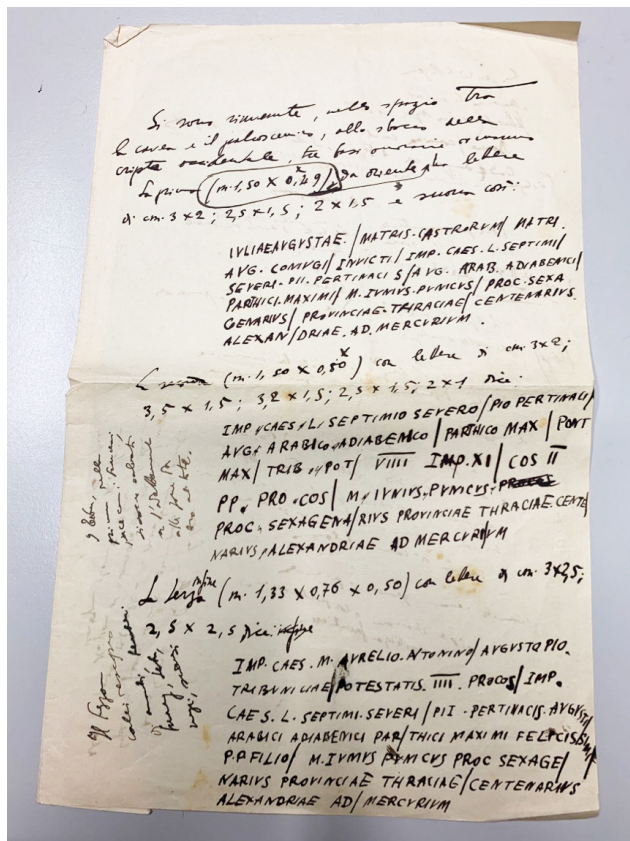 Si sono rinvenute, nello spazio tra
la cavea e il palcoscenico, allo sbocco della
cripta occidentale, tre basi onorarie
La prima (m. 1,50 X 0,49) da oriente ha lettere
di cm. 3 x 2; 2,5 x 1,5; 2 x 1,5 e suona così:
IVLIAEAVGVSTAE. / MATRIS. CASTRORVM / MATRI.
AVG. CONIVGI / INVICTI / IMP. CAES. L. SEPTIMI /
SEVERI. PII. PERTINACIS / AVG. ARAB. ADIABENICI /
PARTHICI. MAXIMI / M. IVNIVS. PVNICVS / PROC. SEXA
GENARIVS / PROVINCIAE. THRACIAE / CENTENARIVS.
ALEXAN / DRIAE. AD. MERCVRIVM.
La seconda (m. 1,50 x 0,50) con lettere di cm. 3x2;
3,5 x 1,5; 3,2 x 1,5; 2,5 x 1,5; 2 x 1 dice:
IMP. CAES. L. SEPTIMIO SEVERO / PIO PERTINACI /
AVG. ARABICO. ADIABENICO / PARTHICO MAX / PONT
MAX / TRIB. POT / VIIII IMP. XI / COS II
PP. PRO. COS / M. IVNIVS. PVNICVS.
PROC. SEXAGENA / RIVS PROVINCIAE THRACIAE. CENTE
NARIVS / ALEXANDRIAE AD MERCVRIVM
La terza infine (m. 1,33 x 0,76 x 0,50) con lettere di cm. 3x2,5;
2,5 x 2,5 dice
IMP. CAES. M. AVRELIO. ANTONINO / AVGVSTO PIO.
TRIBVNICIAE POTESTATIS. IIII. PROCOS / IMP.
CAES. L. SEPTIMI. SEVERI / PII. PERTINACIS. AVGVSTI /
ARABICI ADIABENICI PAR / THICI MAXIMI FELICISSIMI
P.P FILIO / M. IVNIVS PVNICVS PROC SEXAGE /
NARIVS PROVINCIAE THRACIAE / CENTENARIVS
ALEXANDRIAE AD / MERCVRIVM